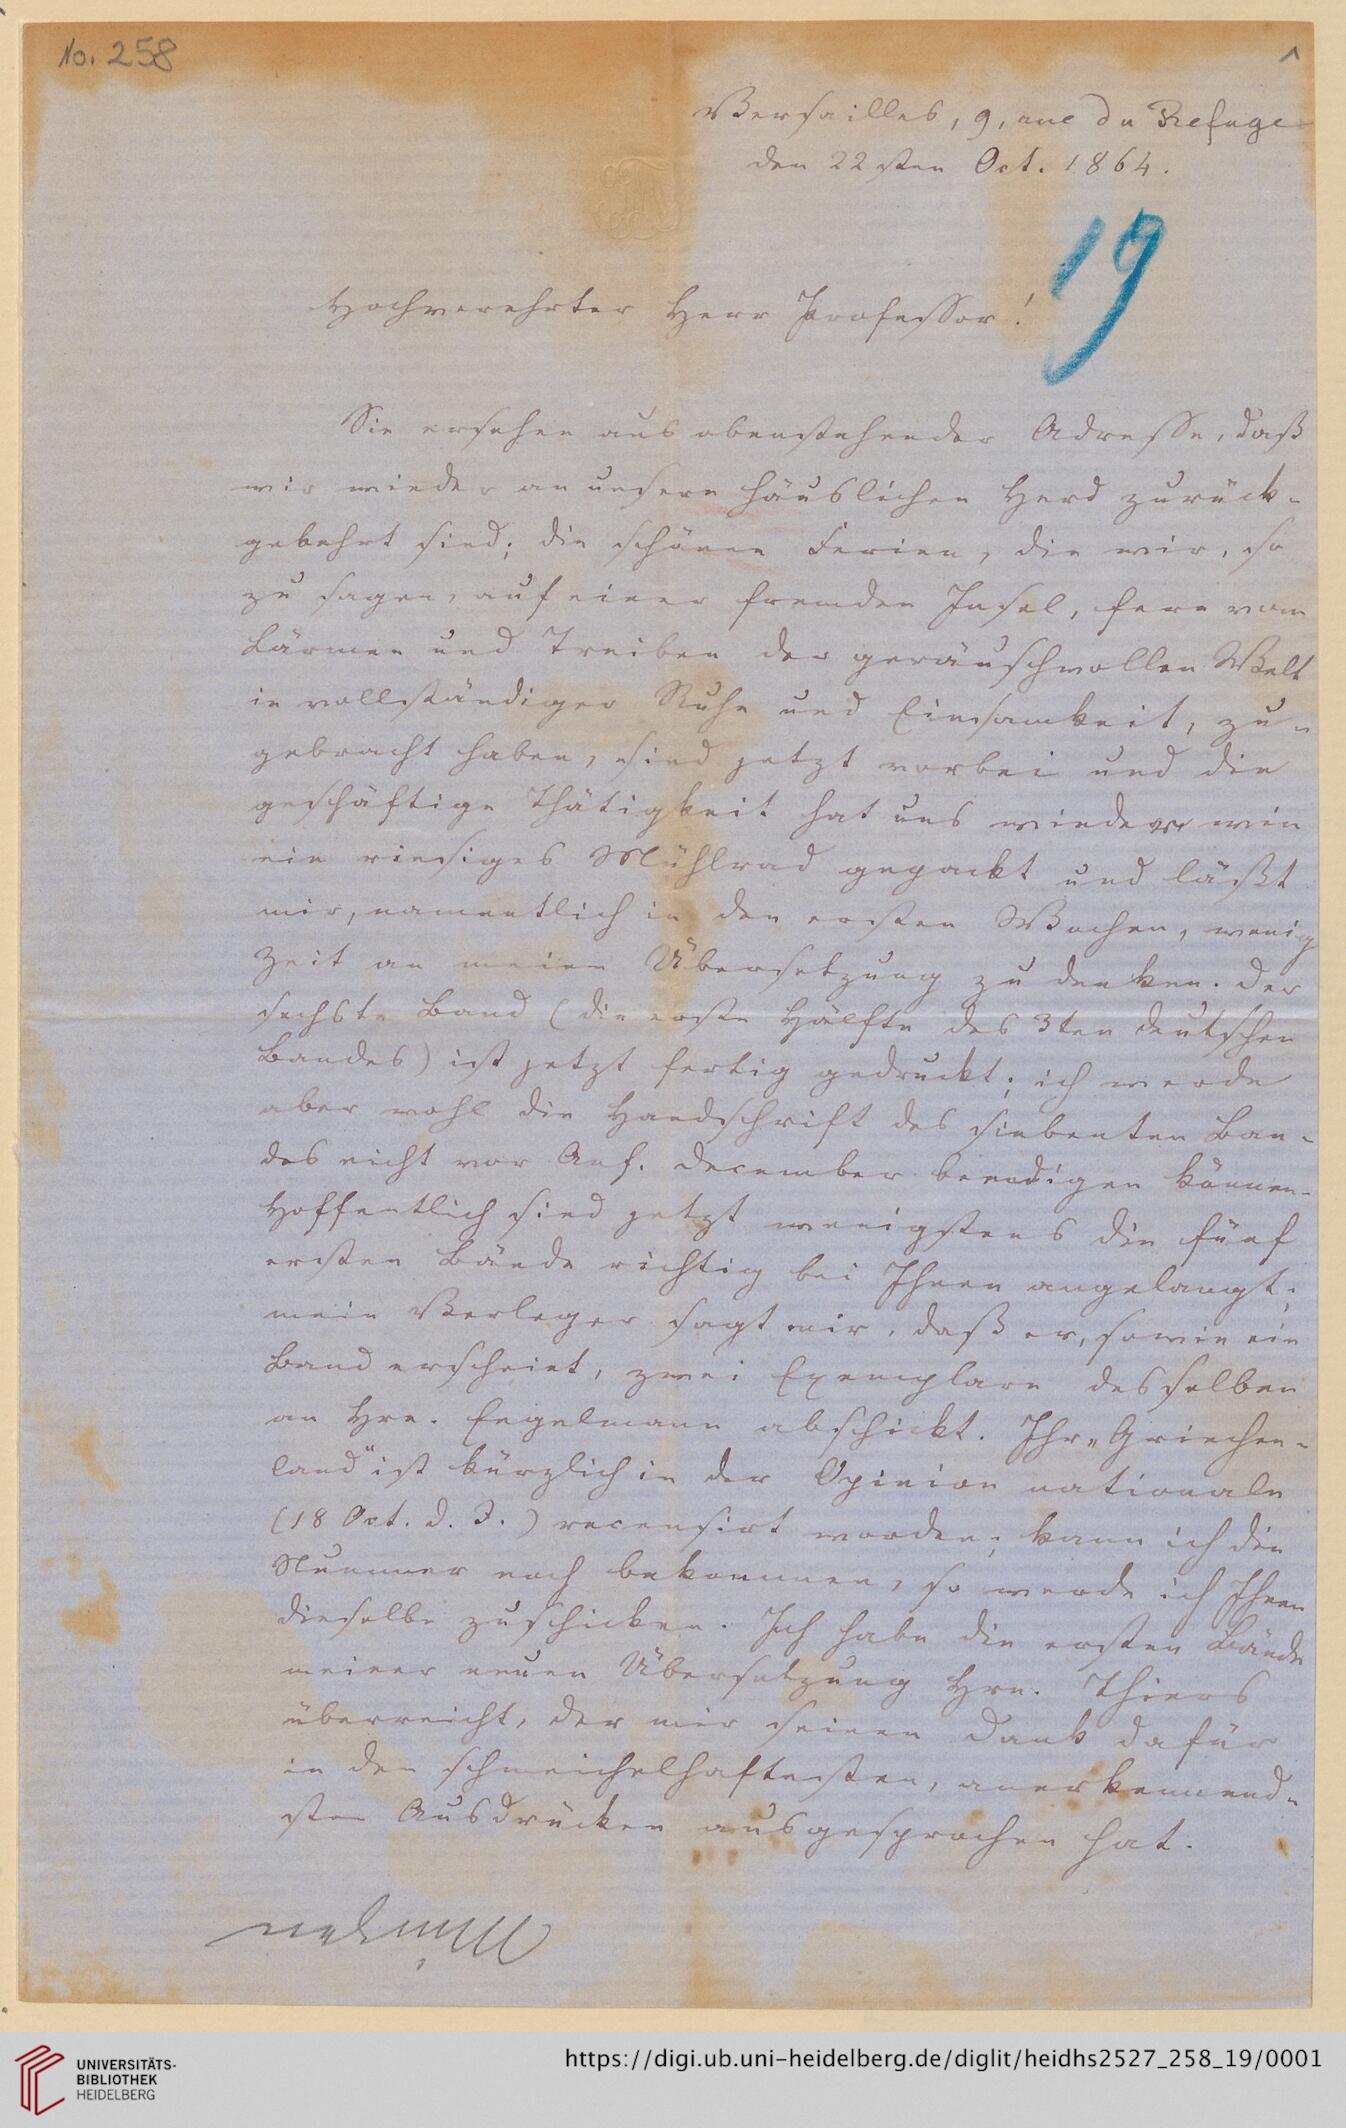 No. 258
1
Versailles, 9, rue du Refuge
den 22sten Oct. 1864.
19
Hochverehrter Herr Professor!
Sie ersehen aus obenstehender Adresse, daß
wir wieder an unsern häuslichen Herd zurück-
gekehrt sind; die schönen Ferien, die wir, so
zu sagen, auf einer fremden Insel, fern vom
Lärmen und Treiben der geräuschvollen Welt
in vollständiger Ruhe und Einsamkeit, zu-
gebracht haben, sind jetzt vorbei und die
geschäftige Thätigkeit hat uns wieder wie
ein riesiges Mühlrad gepackt und läßt
mir, namentlich in den ersten Wochen, wenig
Zeit an meine Übersetzung zu denken. Der
sechste Band (die erste Hälfte des 3ten deutschen
Bandes) ist jetzt fertig gedruckt; ich werde
aber wohl die Handschrift des siebenten Ban-
des nicht vor Anf. December beendigen können.
Hoffentlich sind jetzt wenigstens die fünf
ersten Bände richtig bei Ihnen angelangt;
mein Verleger sagt mir, daß er, sowie ein
Band erscheint, zwei Exemplare desselben
an Hrn. Engelmann abschickt. Ihr „Griechen-
land" ist kürzlich in der Opinion nationale
(18 Oct. d. J.) recensirt worden; kann ich die
Nummer noch bekommen, so werde ich Ihnen
dieselbe zuschicken. Ich habe die ersten Bände
meiner neuen Übersetzung Hrn. Thiers
überreicht, der mir seinen Dank dafür
in den schmeichelhaftesten, anerkennend-
sten Ausdrücken ausgesprochen hat.
UNIVERSITÄTS-
BIBLIOTHEK
HEIDELBERG
https://digi.ub.uni-heidelberg.de/diglit/heidhs2527_258_19/0001